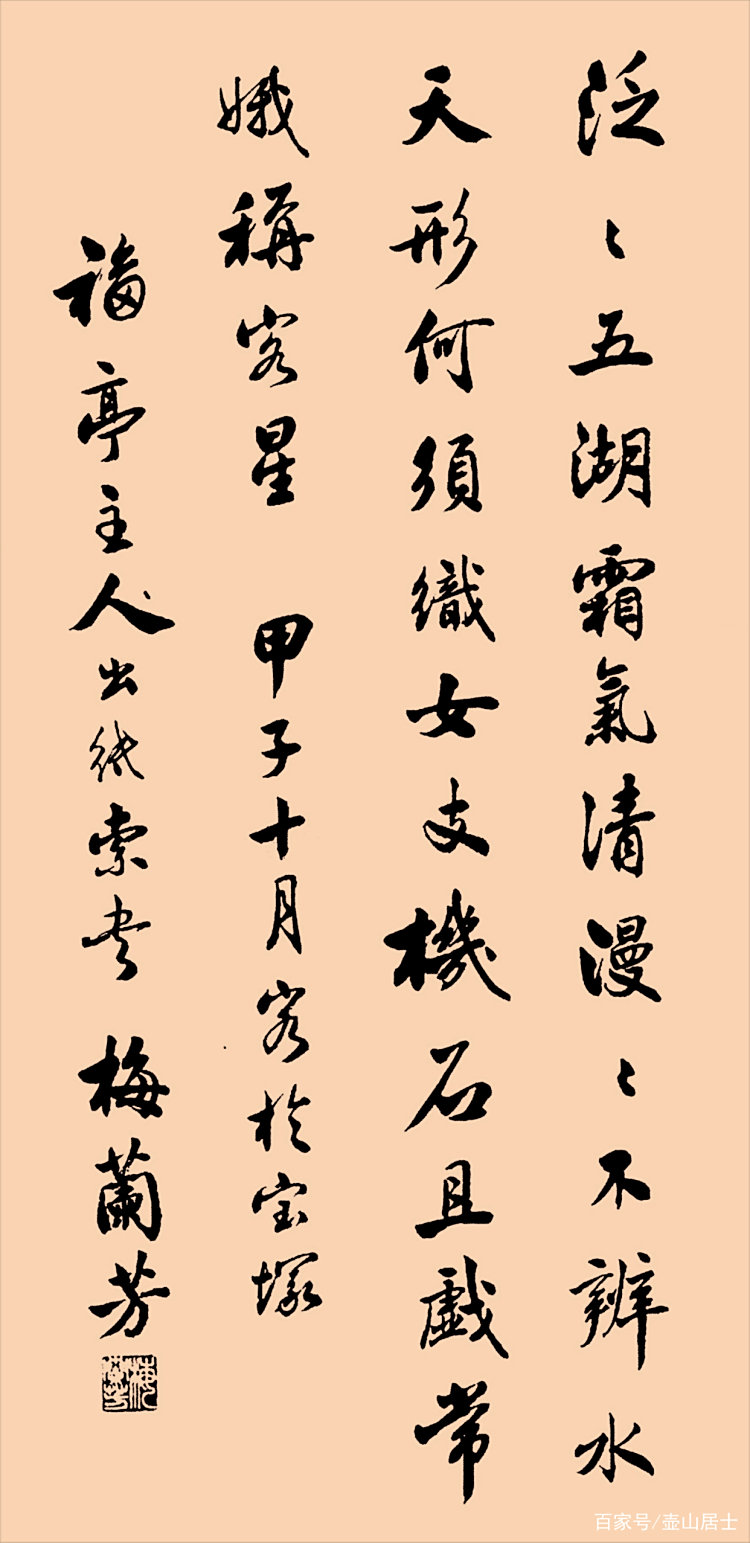 泛〻五湖霜氣清漫〻不辨水
天形何須織女支機石且戲常
娥稱客星 甲子十月客於宝塚
福亭主人出紙索书 梅蘭芳
梅蘭芳
百家号/壶山居士